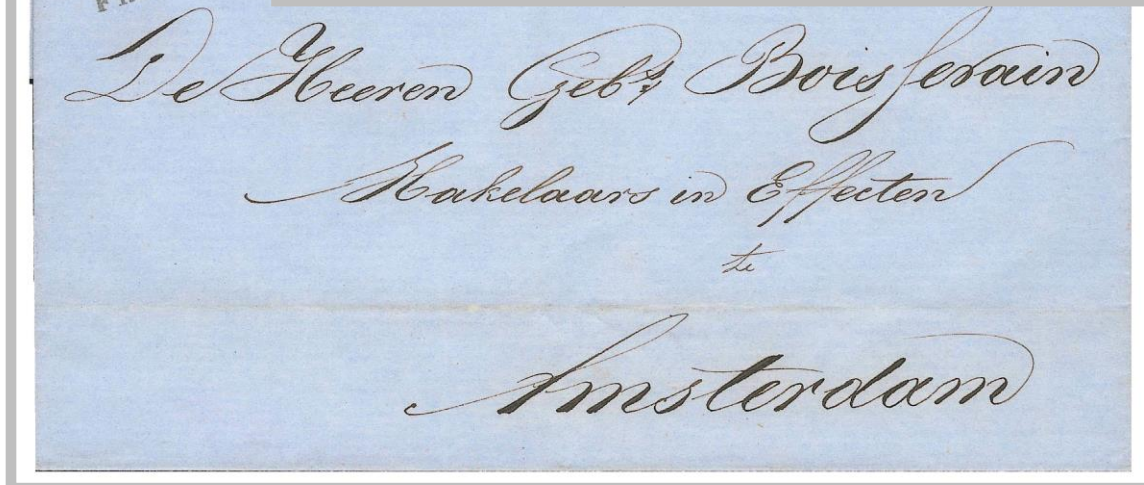 De Heeren Gebrs Boissevain
Makelaars in Effecten
te
Amsterdam